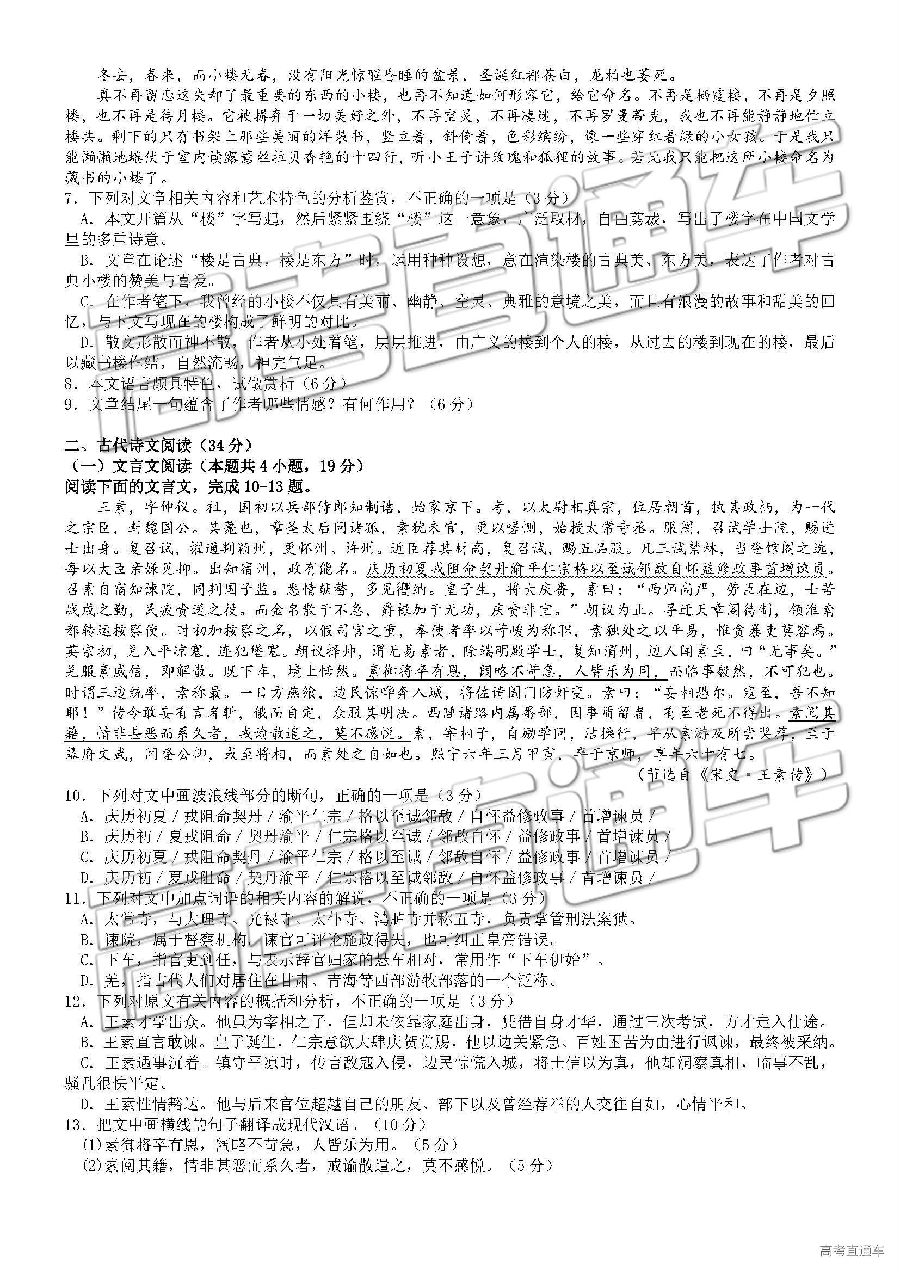 冬去，春来，而小楼无春，没有阳光惊醒告睡的盆景，圣诞红都苍白，龙柏也萎死。
真不再谓恋这失却了最重要的东西的小楼，也再不知道如何形容它，给它命名。不再是栖霞楼，不再是夕照
楼，也不再是待月楼。它被摒弃于一切美好之外，不再空灵，不再浪漫，不再罗曼蒂克，我也不再能静静地伫立
楼头。剩下的只有书架上那些美丽的洋装书，竖立着，斜倚着，色彩缤纷，像一些穿红着绿的小女孩。于是我只
能懒懒地塔伏于室内读露意丝拉贝香艳的十四行，听小王子讲玫瑰和狐狸的故事。若无我只能把这所小楼命名为
藏书的小楼了。
7．下列对文章相关内容和艺术特色的分析鉴赏，不正确的一项是（3 分）
A．本文开篇从“楼”字写起，然后紧紧围绕“楼”这一意象，广泛取材，自由剪裁，写出了楼字在中国文学
里的多重诗意。
B．文章在论述“楼是古典，楼是东方”时，运用种种设想，意在渲染楼的古典美、东方美，表达了作者对古
典小楼的赞美与喜爱。
C．在作者笔下，我曾经的小楼不仅具有美丽、幽静、空灵、典雅的意境之美，而且有浪漫的故事和甜美的回
忆，与下文写现在的楼构成了鲜明的对比。
D．散文形散而神不散，作者从小处着笔，层层推进，由广义的楼到个人的楼，从过去的楼到现在的楼，最后
以藏书楼作结，自然流畅，神完气足。
8．本文语言颇具特色，试做赏析（6 分）
9．文章结尾一句蕴含了作者哪些情感？有何作用？（6 分）
二、古代诗文阅读（34 分）
（一）文言文阅读（本题共 4 小题，19 分）
阅读下面的文言文，完成 10-13 题。
王素，字仲仪。祖，国初以兵部侍郎知制诰，始家京下。考，以太尉相真宗，位居初首，执其政柄，为一代
之宗臣，封魏国公。其薨也，章圣太后闵诸孤，素犹未官，更以 始授太常寺丞。服阕，召试学士院，赐进
士出身。复召试，擢通判颍州，更怀州、许州。近臣荐其材高，复召试，赐五品服。凡三试禁林，当登馆阁之选，
每以大臣亲嫌见抑。出知濮州，政有能名。庆历初夏戎阻命契丹渝平仁宗格以至诚邻敌自怀益修政事首增谏员。
召素自宿知谏院，同判国子监。悉情献替，多见得纳。皇子生，将大庆赉，素曰：“西师尚严，劳臣在边，士苦
战戍之勤，民疲责送之役。而金名散于不急，爵被加于无功，庆赍非宜。”朝议为止。寻迁天章阁待制，领淮南
都转运按察使。时初加按察之名，以假司官之重，奉使者率以苛峻为称职，素独处之以平易，惟贪暴吏莫容焉。
英宗初，羌人平凉塞，连犯堡塞。朝议择帅，谓无易素者，除端明殿学士，复知渭州，边人闻素至，曰“无事矣。”
羌服素威信，即解散。既下车，境上恬然。素御将卒有恩，阔略不苛急，人皆乐为用，而临事毅然，不可犯也。
时谓三边统率，素称最。一日方燕饮，边民惊哗奔入城，将佐请闭门防奸变。素曰：“妄相恐尔。寇至，吾不知
耶！”传令敢妄有言者斩，俄而自定，众服其明决。西陲诸路内属蕃部，因事质留者，有至老死不得出。素阅其
籍，情非甚恶而系久者，戒谕散遣之，莫不感悦。素，等相子，自励学问，洁操行，平昔素游及所尝奖荐，至于
幕府文武，闲登公卿，或至将相，而素处之自也。熙宁六年三月甲寅，卒于京师，享年六十有七。
（节选自《宋史·王素传》）
10．下列对文中画波浪线部分的断句，正确的一项是（3 分）
A．庆历初夏／戎阻命契丹／渝平仁宗／格以至诚邻敌／自怀益修政事／首增谏员／
B．庆历初／夏戎阻命／契丹渝平／仁宗格以至诚／邻敌自怀／益修政事／首增谏员／
C．庆历初夏／戎阻命契丹／渝平仁宗／格以至诚／邻敌自怀／益修政事／首增谏员／
D．庆历初／夏戎阻命／契丹渝平／仁宗格以至诚邻敌／自怀益修政事／首增谏员／
11．下列对文中加点词语的相关内容的解说，不正确的一项是（3 分）
A．太常寺，与大理寺、光禄寺、太仆寺、鸿胪寺并称五寺，负责掌管刑法案狱。
B．谏院，属于督察机构，谏官可评论施政得失，也可纠正皇帝错误。
C．下车，指官吏到任，与表示辞官归家的悬车相对，常用作“下车伊始”。
D．羌，指古代人们对居住在甘肃、青海等西部游牧部落的一个泛称。
12．下列对原文有关内容的概括和分析，不正确的一项是（3 分）
A．王素才学出众。他虽为宰相之子，但却未依靠家庭出身，凭借自身才华，通过三次考试，方才走入仕途。
B．王素直言敢谏。皇子诞生，仁宗意欲大肆庆贺赏赐，他以边关紧急、百姓生苦为由进行讽谏，最终被采纳。
C．王素遇事沉着。镇守平凉时，传言敌寇入侵，边民惊慌入城，将士信以为真，他却洞察真相，临事不乱，
骚乱很快平定。
D．王素性情豁达。他与后来官位超越自己的朋友、部下以及曾经荐举的人交往自如，心情平和。
13．把文中画横线的句子翻译成现代汉语。（10 分）
(1)素御将卒有恩，阔略不苛急，人皆乐为用。（5 分）
(2)素阅其籍，情非甚恶而系久者，戒谕散遣之，莫不感悦。（5 分）
高考直通车